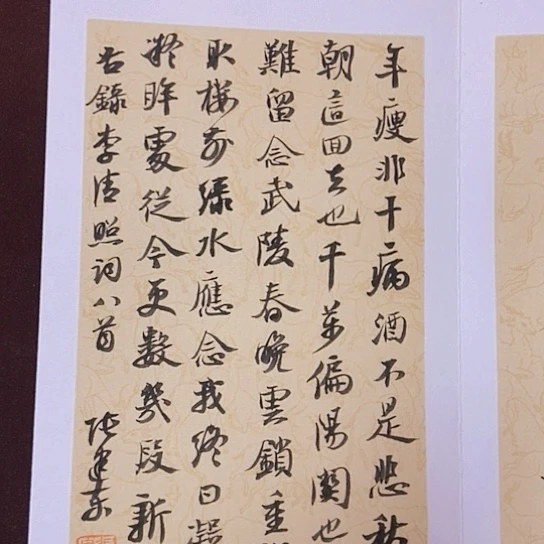 年瘦非干病酒不是悲秋
朝這回去也千萬偏陽關也
難留念武陵春晚雲鎖重
取樓前綠水應念我終日凝
凝眸處從今更數幾段新
右錄李清照詞八首 張建東